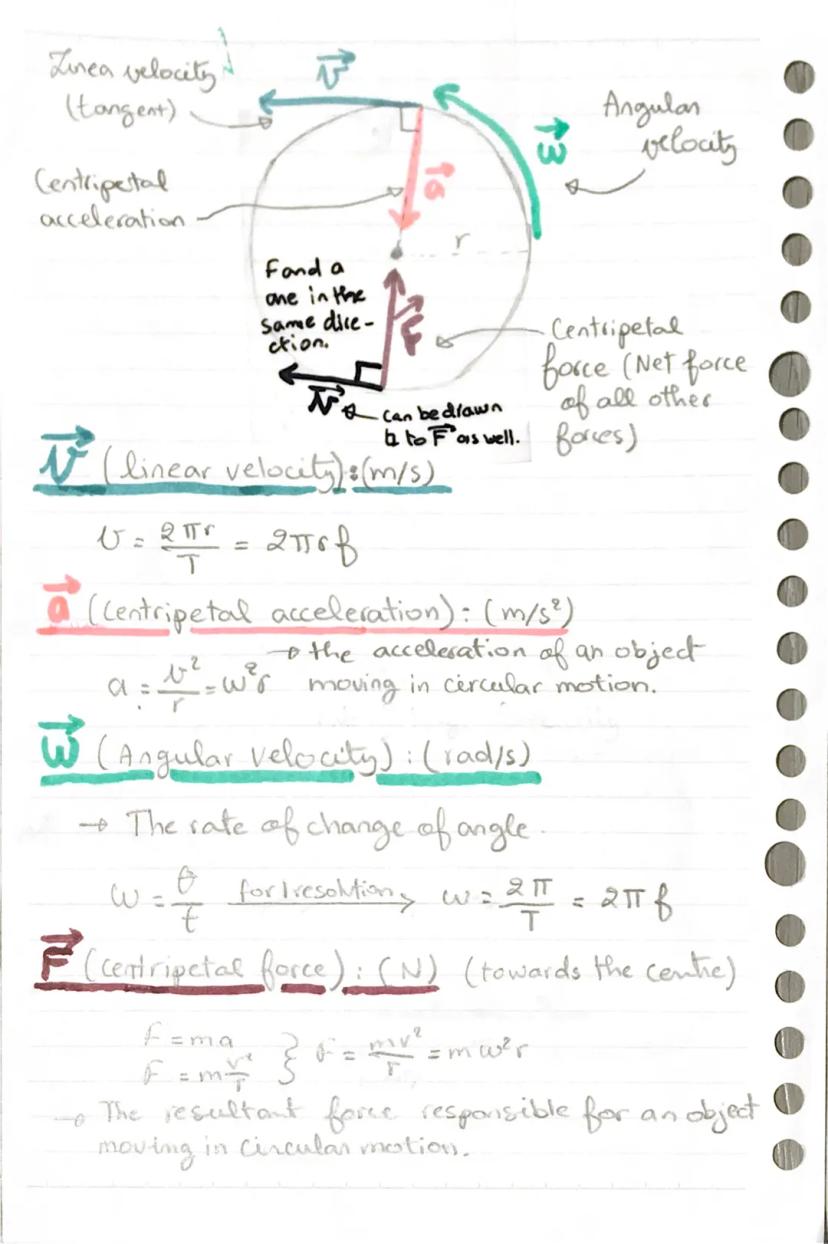 Linea velocity
(tangent)
v
Angular
velocity
ω
Centripetal
acceleration
a
r
F and a
are in the
same dire-
ction.
F
Centripetal
force (Net force
of all other
forces)
v
can be drawn
to F as well.
v (linear velocity): (m/s)
v = 2πr/T = 2πrf
a (centripetal acceleration): (m/s²)
→ the acceleration of an object
a = v²/r = ω²r moving in circular motion.
ω (Angular velocity): (rad/s)
→ The rate of change of angle.
ω = θ/t for 1 resolution → ω = 2π/T = 2πf
F (centripetal force): (N) (towards the centre)
F = ma
F = m v²/r } F = mv²/r = mω²r
→ The resultant force responsible for an object
moving in circular motion.